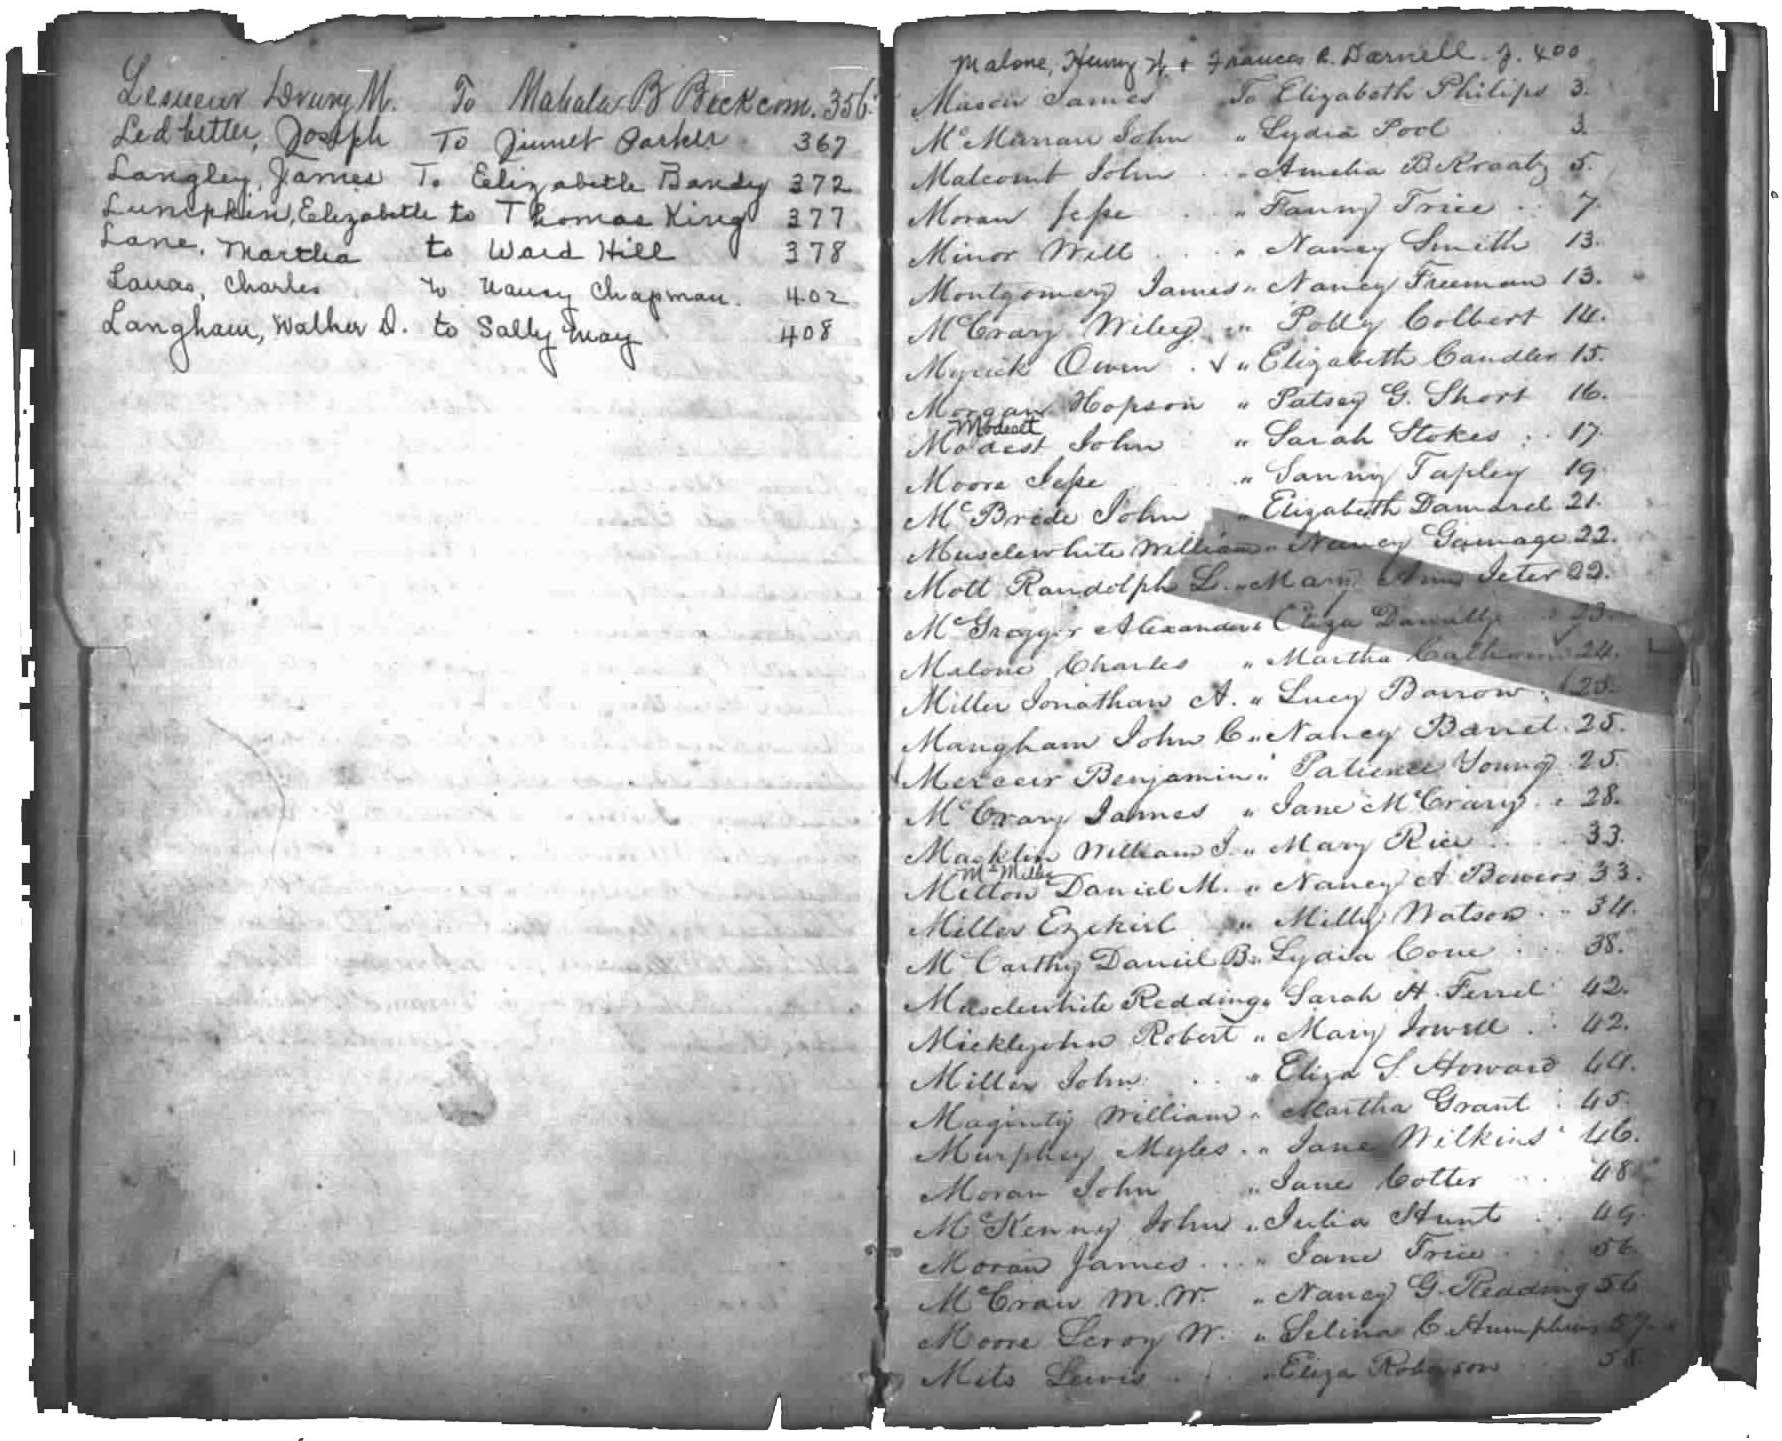 Lesueur Drury M. To Mahala B Beckcom. 356.
Ledbetter, Joseph To Jinnet Parker 367
Langley, James To Elizabeth Bandy 372
Lumpkin, Elizabeth to Thomas King 377
Lane, Martha to Ward Hill 378
Lauas, Charles to Nancy Chapman. 402
Langham, Walker D. to Sally May 408
Malone, Henry H. + Frances C. Darnell. J. 400
Mason James To Elizabeth Philips 3.
McMurrau John " Lydia Pool 3.
Malcomb John " Amelia B Kraatz 5.
Moran Jesse " Fanny Trice 7.
Minor Will " Nancy Smith 13.
Montgomery James " Nancy Freeman 13.
McCrary Wiley " Polly Colbert 14.
Myrick Owen √ " Elizabeth Candler 15.
Morgan Hopson " Patsey G. Short 16.
Modest
Modest John " Sarah Stokes 17.
Moore Jesse " Sanny Tapley 19.
McBride John " Elizabeth Damarel 21.
Musclewhite William " Nancy Gamage 22.
Mott Randolph L. " Mary Ann Jeter 22.
McGregger Alexander " Eliza Danielly 23.
Malone Charles " Martha Calhoun 24.
Miller Jonathan A. " Lucy Barrow 25.
Mangham John C " Nancy Barret 25.
Mercer Benjamin " Patience Young 25.
McCrary James " Jane McCrary 28.
Macklin William J. " Mary Rice 33.
McMillan
Melton Daniel M. " Nancy A Bowers 33.
Miller Ezekiel " Milly Watson 34.
McCarthy Daniel B " Lydia Cone 38.
Musclewhite Redding " Sarah H. Ferrel 42.
Micklejohn Robert " Mary Jowell 42.
Miller John " Eliza S Howard 44.
Maginty William " Martha Grant 45.
Murphey Myles " Jane Wilkins 46.
Moran John " Jane Cotter 48
McKenny John " Julia Hunt 49.
Moran James " Jane Trice 56.
McCraw M. W. " Nancy G. Redding 56
Moore Leroy W. " Selina C. Humphries 57.
Mits Lewis " Eliza Roberson 58.